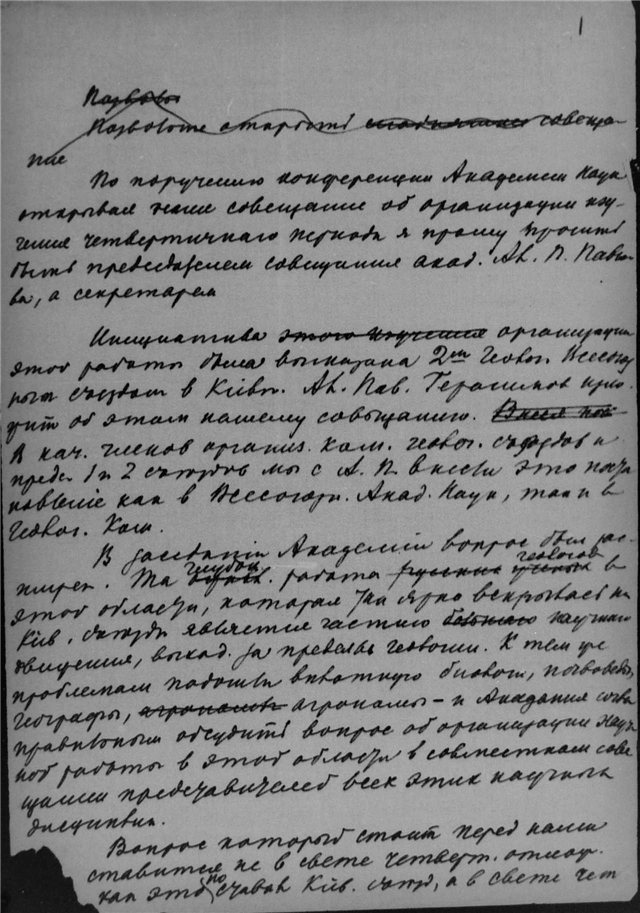 1
Позвольте
Позвольте открыть совеща-
ние
По поручению конференции Академии Наук
открывая наше совещание об организации изу-
чения четвертичнаго периода я прошу просить
быть председателем совещания акад. Ал. П. Павло-
ва, а секретарем
Инициатива этого изучения организации
этой работы была высказана 2ым Геолог. Всесоюз
ным съездом в Кіеве. Ал. Пав. Герасимов
об этом нашему совещанию.
В кач. членов организ. ком. геолог. съездов и
предс. 1 и 2 съездов мы с А. П. внесли это поста
новленіе как в Всесоюзн. Акад. Наук, так и в
Геолог. Ком.
В заседаніи Академіи вопрос был рас-
ширен. Та глубок. работа русских ученых геологов в
этой области, которая так ярко вскрылась на
Кіев. съезде является частью большого научнаго
движения, выход. за пределы геологии. К тем же
проблемам подошли вплотную биологи, почвоведы,
географы, агрономы агрономы – и Академия сочла
правильным обсудить вопрос об организации науч
ной работы в этой области в совместном сове
щании представителей всех этих научных
дисциплин.
Вопрос который стоит перед нами
ставится не в свете четверт. отлож.
как это по словам Кіев. съезд, а в свете чет